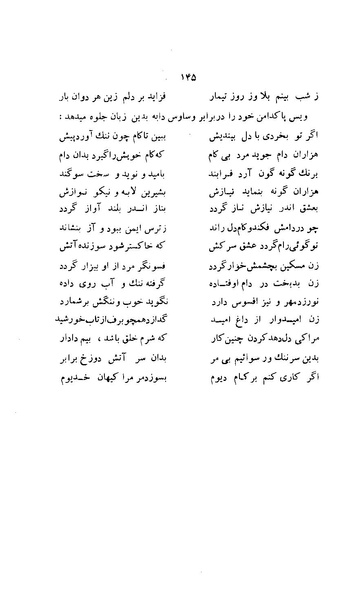 ۱۴۵
ز شب بینم بلا وز روز تیمار فزاید بر دلم زین هر دوان بار
ویس پاکدامن خود را دربرابر وساوس دایه بدین زبان جلوه میدهد :
اگر تو بخردی با دل بیندیش ببین تاکام چون ننگ آوردپیش
هزاران دام جوید مرد بی کام که کام خویش راگیرد بدان دام
برنگ گونه گون آرد فرابند بامید و نوید و سخت سوگند
هزاران گونه بنماید نیازش بشیرین لابه و نیکو نوازش
بعشق اندر نیازش ناز گردد بناز اندر بلند آواز گردد
چو دردامش فکندوکام دل راند ز ترس ایمن ببود و آز بنشاند
توگوئی رام گردد عشق سرکش که خاکسترشود سوزنده آتش
زن مسکین بچشمش خوارگردد فسونگر مرد از او بیزار گردد
زن بدبخت در دام اوفتاده گرفته ننگ و آب روی داده
نورزدمهر و نیز افسوس دارد نگوید خوب وننگش برشمارد
زن امیدوار از داغ امید گدازدهمچوبرف ازتاب خورشید
مراکی دل دهدکردن چنین کار که شرم خلق باشد ، بیم دادار
بدین سرننگ ور سوائیم بی مر بدان سر آتش دوزخ برابر
اگر کاری کنم برکام دیوم بسوزدمر مرا کیهان خدیوم